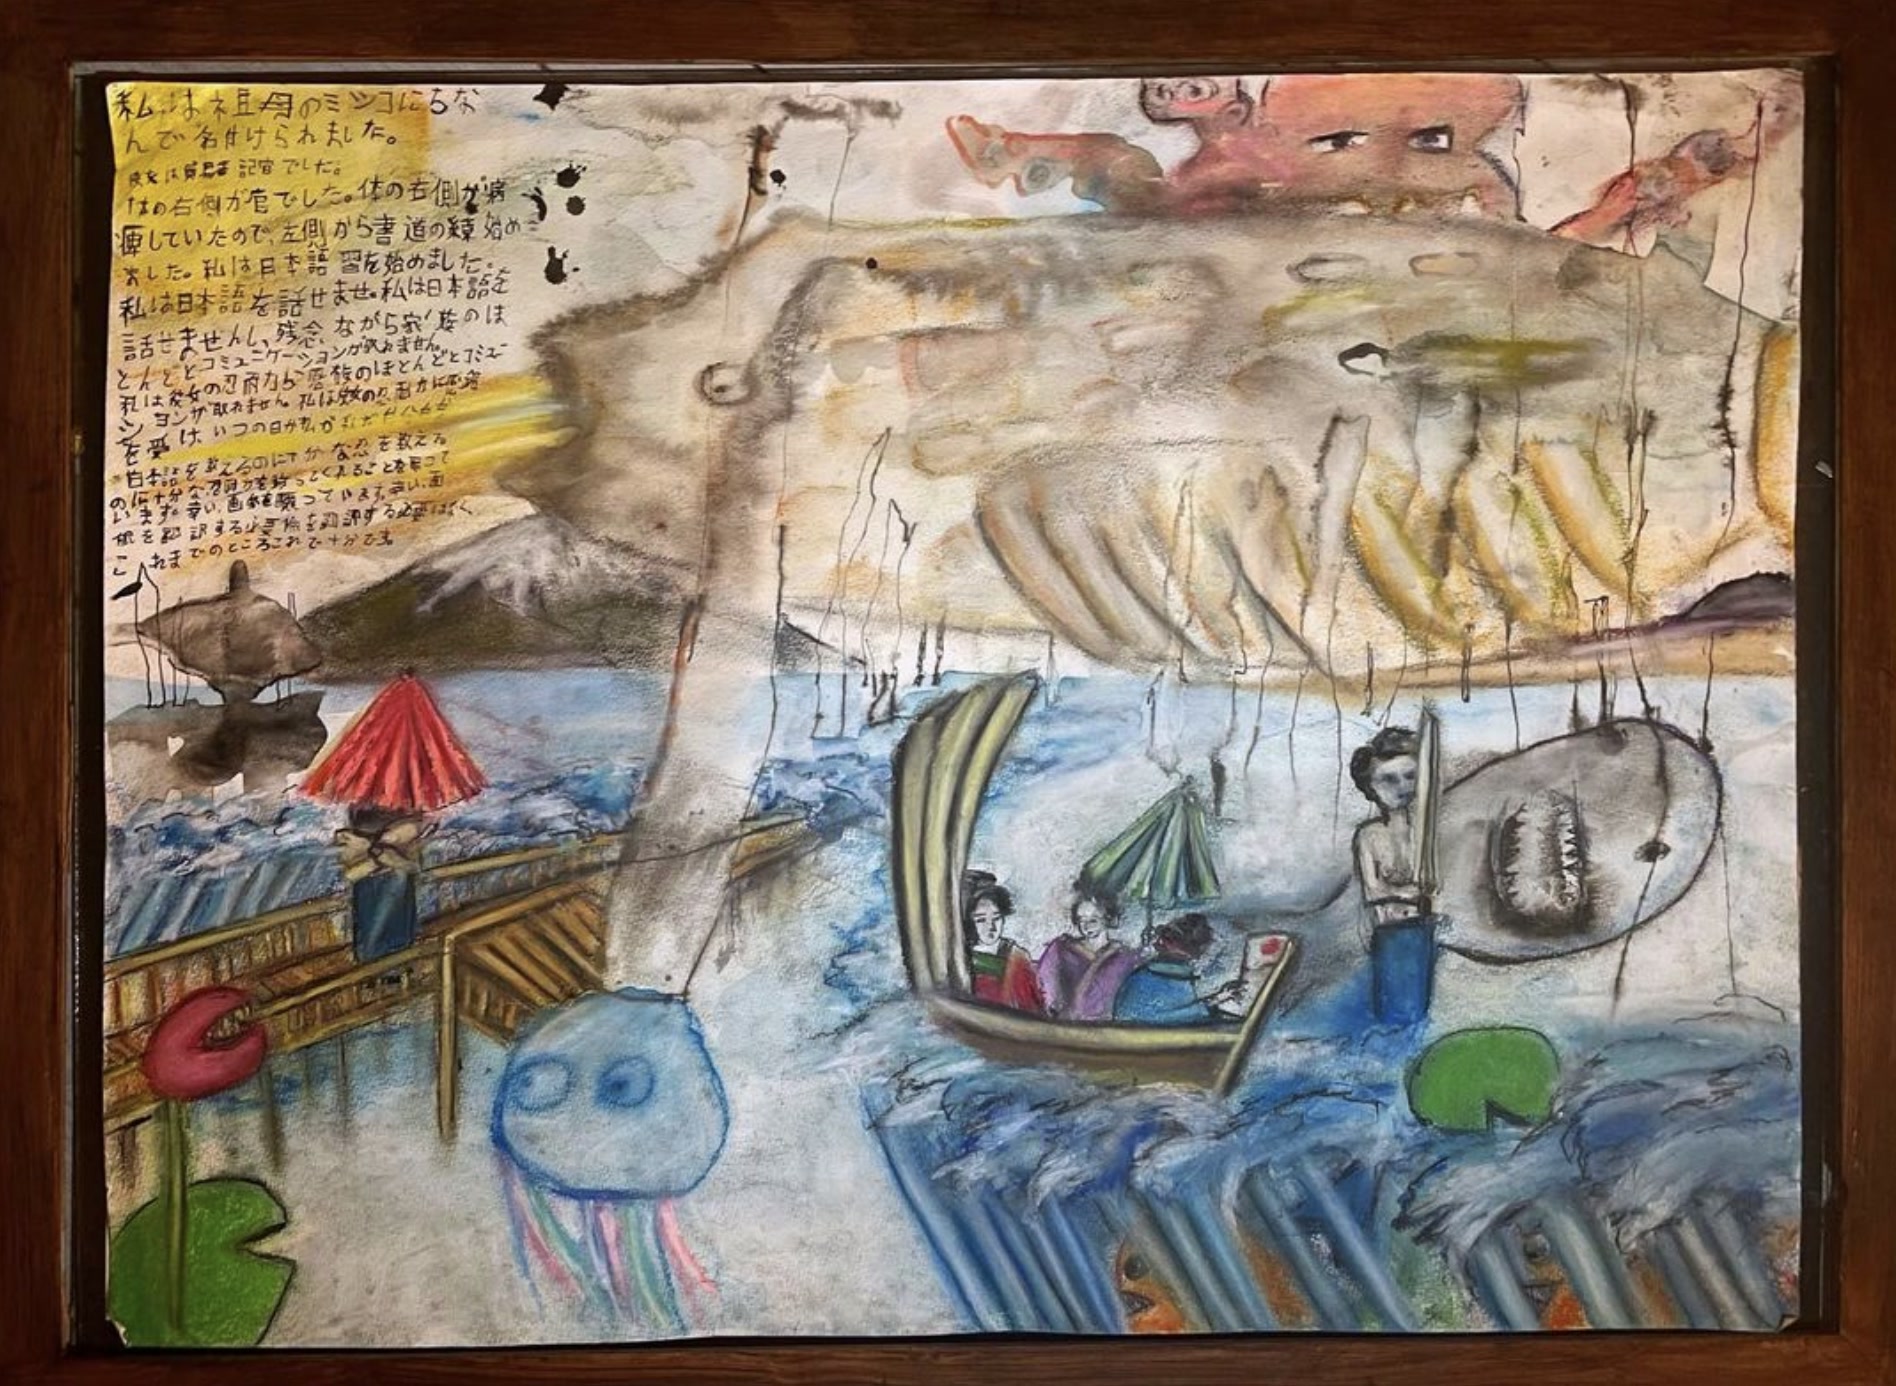 私は祖母のミツコにちな
んで名付けられました。
彼女は 記官でした。
はの右側が でした。体の右側が病
していたので、左側から書道の練 始め
ました。私は日本語 習を始めました。
私は日本語を話せませ。私は日本語を
話せませんし、残念、ながら家族のほ
とんどとコミュニケーションが取れません。
私は彼女の忍耐力 族のほとんどとコミュニ
ションが取れません 私は彼女の忍耐力に
を受け、いつの日か私が
日本語を教えるのに十分な忍を教える
のに十分な を持ってくれることを
います。幸い、画 を願っています。幸い、画
を翻訳する必要 を翻訳する必要はなく、
これまでのところこれで十分です。